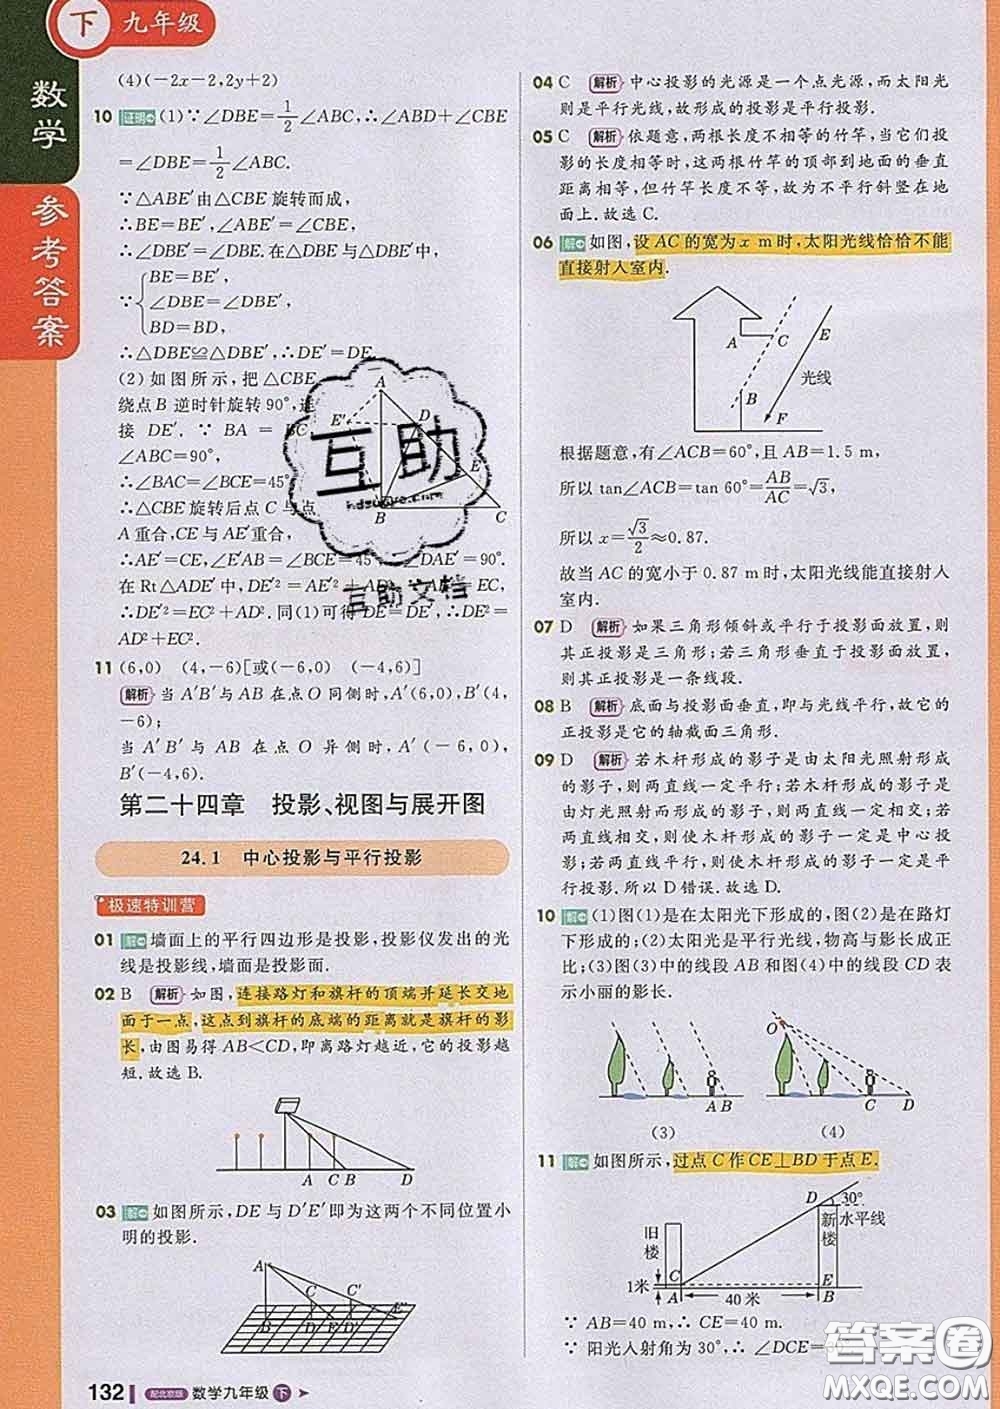 下 九年级
数学
参考答案
(4)(-2x-2,2y+2)
10 证明 (1)∵∠DBE=1/2∠ABC,∴∠ABD+∠CBE
=∠DBE=1/2∠ABC.
∵△ABE′由△CBE旋转而成,
∴BE=BE′,∠ABE′=∠CBE,
∴∠DBE′=∠DBE.在△DBE与△DBE′中,
∵{BE=BE′,
∠DBE=∠DBE′,
BD=BD,
∴△DBE≌△DBE′,∴DE′=DE.
(2)如图所示,把△CBE
绕点B逆时针旋转90°,连
接DE′.∵BA=BC,
∠ABC=90°,
∴∠BAC=∠BCE=45°.
∴△CBE旋转后点C与点
A重合,CE与AE′重合,
∴AE′=CE,∠E′AB=∠BCE=45°,∴∠DAE′=90°.
在Rt△ADE′中,DE′²=AE′²+AD²,∵AE′=EC,
∴DE′²=EC²+AD².同(1)可得DE=DE′,∴DE²=
AD²+EC².
11 (6,0) (4,-6)[或(-6,0) (-4,6)]
解析 当A′B′与AB在点O同侧时,A′(6,0),B′(4,
-6);
当A′B′与AB在点O异侧时,A′(-6,0),
B′(-4,6).
第二十四章 投影、视图与展开图
24.1 中心投影与平行投影
极速特训营
01 解 墙面上的平行四边形是投影,投影仪发出的光
线是投影线,墙面是投影面.
02 B 解析 如图,连接路灯和旗杆的顶端并延长交地
面于一点,这点到旗杆的底端的距离就是旗杆的影
长,由图易得AB<CD,即离路灯越近,它的投影越
短.故选B.
A C B D
03 解 如图所示,DE与D′E′即为这两个不同位置小
明的投影.
A C C′ B D E D′ E′
132 配北京版 数学九年级 下
04 C 解析 中心投影的光源是一个点光源,而太阳光
则是平行光线,故形成的投影是平行投影.
05 C 解析 依题意,两根长度不相等的竹竿,当它们投
影的长度相等时,这两根竹竿的顶部到地面的垂直
距离相等,但竹竿长度不等,故为不平行斜竖在地
面上.故选C.
06 解 如图,设AC的宽为x m时,太阳光线恰恰不能
直接射入室内.
A C E B F 光线
根据题意,有∠ACB=60°,且AB=1.5 m,
所以tan∠ACB=tan 60°=AB/AC=√3,
所以x=√3/2≈0.87.
故当AC的宽小于0.87 m时,太阳光线能直接射人
室内.
07 D 解析 如果三角形倾斜或平行于投影面放置,则
其正投影是三角形;若三角形垂直于投影面放置,则
其正投影是一条线段.
08 B 解析 底面与投影面垂直,即与光线平行,故它的
正投影是它的轴截面三角形.
09 D 解析 若木杆形成的影子是由太阳光照射形成
的影子,则两直线一定平行;若木杆形成的影子是
由灯光照射而形成的影子,则两直线一定相交;若
两直线相交,则使木杆形成的影子一定是中心投
影;若两直线平行,则使木杆形成的影子一定是平
行投影.所以D错误.故选D.
10 解 (1)图(1)是在太阳光下形成的,图(2)是在路灯
下形成的;(2)太阳光是平行光线,物高与影长成正
比;(3)图(3)中的线段AB和图(4)中的线段CD表
示小丽的影长.
A B O C D
(3) (4)
11 解 如图所示,过点C作CE⊥BD于点E.
D 30° 水平线
旧楼 新楼
1米 C E
A 40米 B
∵AB=40 m,∴CE=40 m.
∵阳光入射角为30°,∴∠DCE=
互助
hdzuoye.com
互助文档
答案圈
MXQE.COM